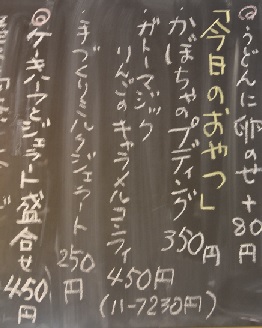 ◎うどんに卵のせ+80円
「今日のおやつ」
・かぼちゃのプディング 350円
・ガトーマジック
りんごのキャラメルコンフィ 450円
(11-7230円)
・手づくりミルクジェラート 250円
◎ケーキハーフとジェラート盛合せ 450円